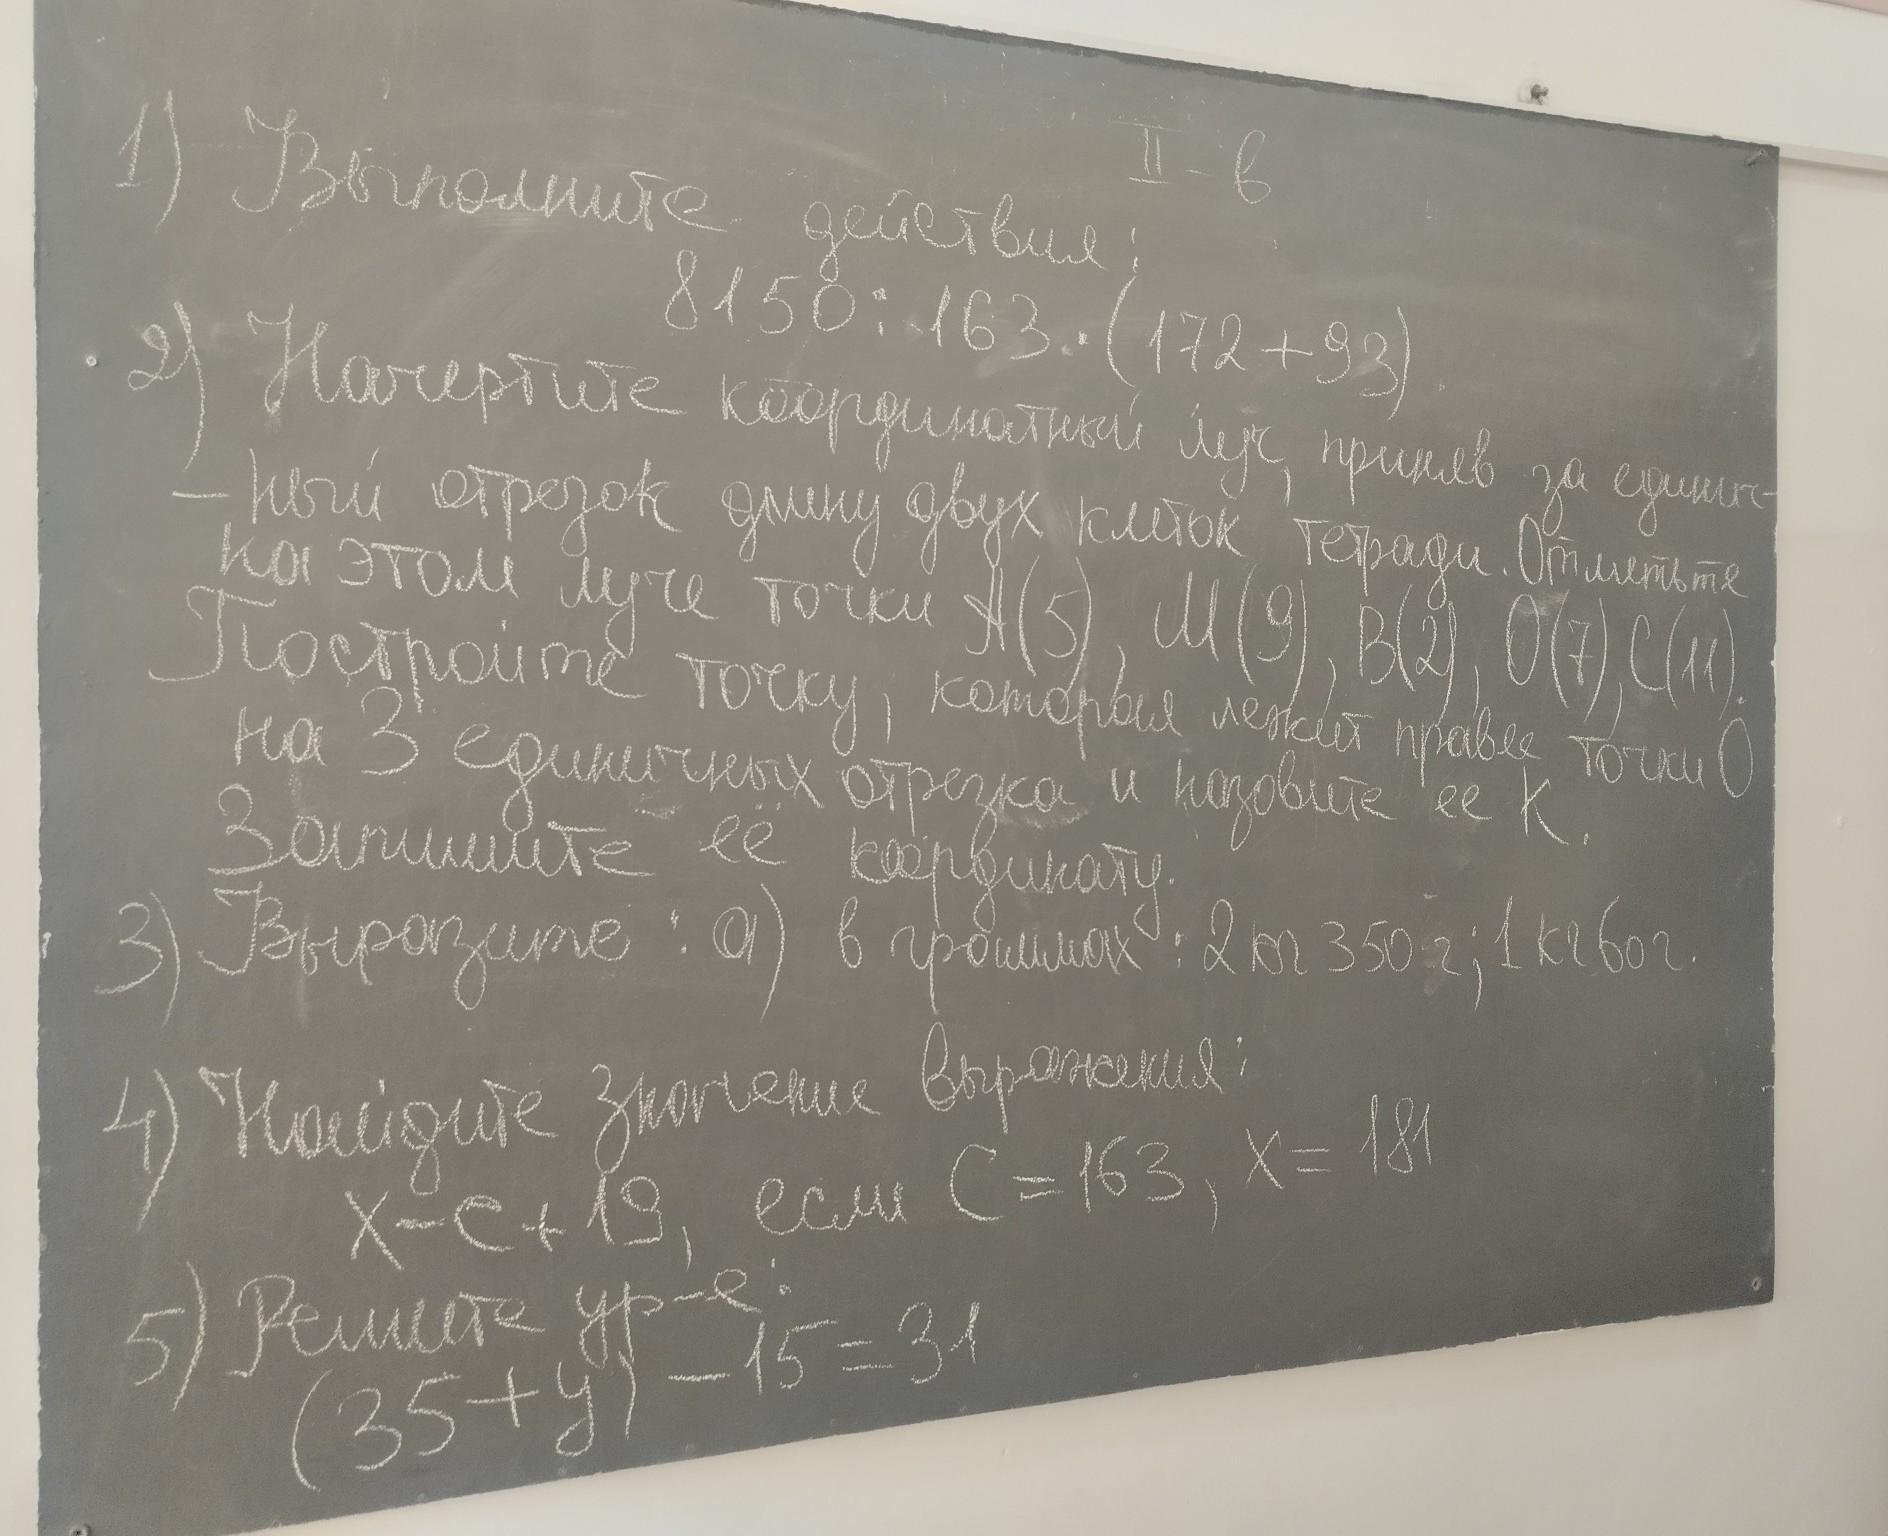 II - в
1) Выполните действия:
8150 : 163 · (172 + 93)
2) Начертите координатный луч, приняв за единич-
- ный отрезок длину двух клеток тетради. Отметьте
на этом луче точки А(5), М(9), В(2), О(7), С(11).
Постройте точку, которая лежит правее точки О
на 3 единичных отрезка и назовите ее К.
Запишите её координату.
3) Выразите : а) в граммах : 2 кг 350 г; 1 кг 60 г.
4) Найдите значение выражения:
х - с + 19, если С = 163, х = 181
5) Решите ур-е:
(35 + у) - 15 = 31